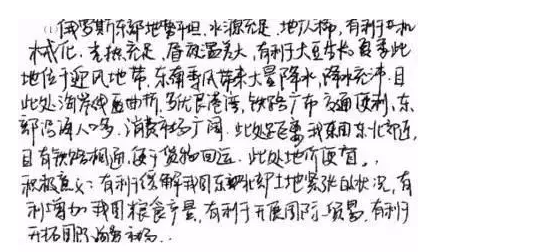 (1)俄罗斯东部地势平坦,水源充足,地广人稀,有利于机
械化.光热充足,昼夜温差大,有利于大豆生长夏季此
地位于迎风地带,东南季风带来大量降水,降水充沛.且
此处海岸线曲折,多优良港湾,铁路广布交通便利,东
部沿海人口多.消费市场广阔.此处距离我国东北部近,
且有铁路相通,便于货物回运.此处地价便宜.
积极意义:有利于缓解我国东北部土地紧张的状况,有
利增加我国粮食产量,有利于开展国际贸易,有利于
开拓国际海外市场.